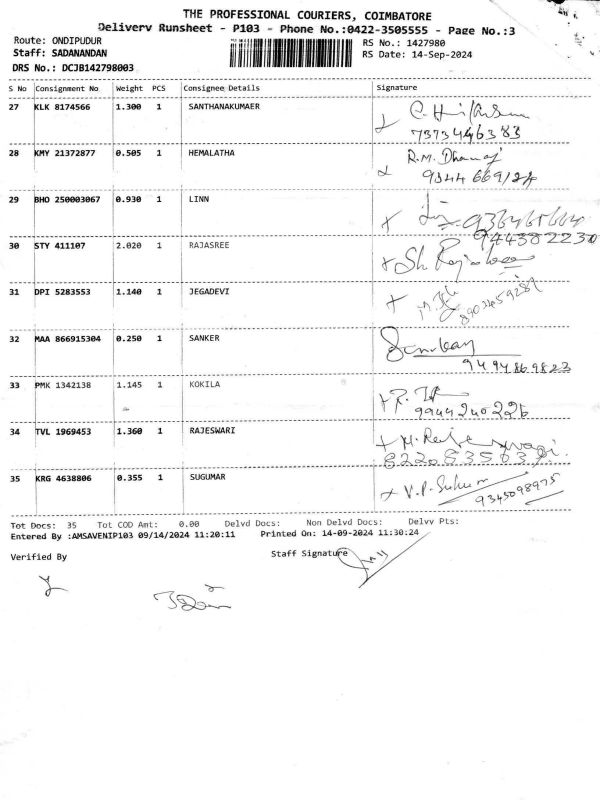 THE PROFESSIONAL COURIERS, COIMBATORE
Delivery Runsheet - P103 - Phone No.:0422-3505555 - Page No.:3
Route: ONDIPUDUR
RS No.: 1427980
Staff: SADANANDAN
RS Date: 14-Sep-2024
DRS No.: DCJB142798003
S No Consignment No Weight PCS Consignee Details Signature
27 KLK 8174566 1.300 1 SANTHANAKUMAER
7373446383
28 KMY 21372877 0.505 1 HEMALATHA R.M. Dhanaj
29 BHO 250003067 0.930 1 LINN
944382230
30 STY 411107 2.020 1 RAJASREE
31 DPI 5283553 1.140 1 JEGADEVI
8903459289
32 MAA 866915304 0.250 1 SANKER
9494869823
33 PMK 1342138 1.145 1 KOKILA
9944240226
34 TVL 1969453 1.360 1 RAJESWARI
35 KRG 4638806 0.355 1 SUGUMAR V.P. Sukum
9345098975
Tot Docs: 35 Tot COD Amt: 0.00 Delvd Docs: Non Delvd Docs: Delvv Pts:
Entered By :AMSAVENIP103 09/14/2024 11:20:11 Printed On: 14-09-2024 11:30:24
Verified By Staff Signature